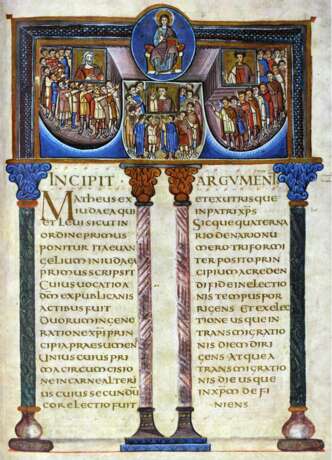 INCIPIT ARGVMEN
Matheus ex
iudaea qui
et leui sicut in
ordine primus
ponitur ita euan
gelium in iudaea
primus scripsit
Cuius uocatio a
dm ex publicanis
actibus fuit
duorum in gene
ratione xpi prin
cipia praesumen
unius cuius pri
ma circumcisio
ne in carne alteri
us cuius secundu
cor electio fuit
et ex utrisque
in patri xps
Sicque quaterna
rio denario nu
mero triformi
ter posito prin
cipium acreden
di fide in electio
nis tempus por
rigens et ex elec
tione usque in
transmigratio
nis diem diri
gens atque a
transmigratio
nis die usque
in xpm defi
niens